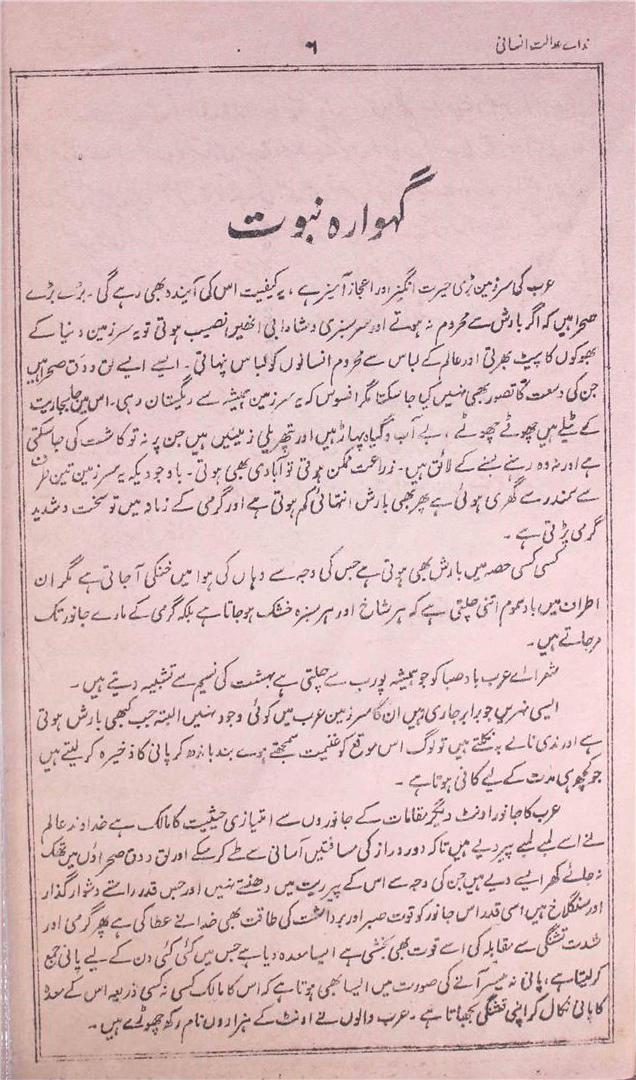 ندائے عدالت انسانی
۶
گہوارہ نبوت
عرب کی سرزمین بڑی حیرت انگیز اور اعجاز آمیز ہے، یہ کیفیت اس کی آیندہ بھی رہے گی۔ بڑے بڑے
صحرا ہیں کہ اگر بارش سے محروم نہ ہوتے اور سرسبزی و شادابی انھیں نصیب ہوتی تو یہ سرزمین دنیا کے
بھوکوں کا پیٹ بھرتی اور عالم کے لباس سے محروم انسانوں کو لباس پہناتی۔ ایسے ایسے لق و دق صحرا ہیں
جن کی وسعت کا تصور بھی نہیں کیا جا سکتا مگر افسوس کہ یہ سرزمین ہمیشہ سے ریگستان رہی۔ اس میں جابجا ریت
کے ٹیلے ہیں چھوٹے چھوٹے، بے آب و گیاہ پہاڑ ہیں اور پتھریلی زمینیں ہیں جن پر نہ تو کاشت کی جا سکتی
ہے اور نہ وہ رہنے بسنے کے لائق ہیں۔ زراعت ممکن ہوتی تو آبادی بھی ہوتی۔ باوجود یکہ یہ سرزمین تین طرف
سے سمندر سے گھری ہوئی ہے پھر بھی بارش انتہائی کم ہوتی ہے اور گرمی کے زمانہ میں تو سخت و شدید
گرمی پڑتی ہے۔
کسی کسی حصہ میں بارش بھی ہوتی ہے جس کی وجہ سے وہاں کی ہوا میں خنکی آ جاتی ہے مگر ان
اطراف میں باد سموم اتنی چلتی ہے کہ ہر شاخ اور ہر سبزہ خشک ہو جاتا ہے بلکہ گرمی کے مارے جانور تک
مر جاتے ہیں۔
شعرائے عرب باد صبا کو جو ہمیشہ پورب سے چلتی ہے بہشت کی نسیم سے تشبیہ دیتے ہیں۔
ایسی نہریں جو برابر جاری ہیں ان کا سرزمین عرب میں کوئی وجود نہیں البتہ جب کبھی بارش ہوتی
ہے اور ندی نالے بہ نکلتے ہیں تو لوگ اس موقع کو غنیمت سمجھتے ہوے بند باندھ کر پانی کا ذخیرہ کر لیتے ہیں
جو کچھ ہی مدت کے لیے کافی ہوتا ہے۔
عرب کا جانور اونٹ دیگر مقامات کے جانوروں سے امتیازی حیثیت کا مالک ہے خداوند عالم
نے اسے لمبے لمبے پیر دیے ہیں تاکہ دور دراز کی مسافتیں آسانی سے طے کر سکے اور لق و دق صحراؤں میں تھک
نہ جائے کھر ایسے دیے ہیں جن کی وجہ سے اس کے پیر ریت میں دھنستے نہیں اور جس قدر راستے دشوار گذار
اور سنگلاخ ہیں اسی قدر اس جانور کو قوت صبر اور برداشت کی طاقت بھی خدا نے عطا کی ہے پھر گرمی اور
شدت تشنگی سے مقابلہ کی اسے قوت بھی بخشی ہے ایسا معدہ دیا ہے جس میں کئی کئی دن کے لیے پانی جمع
کر لیتا ہے، پانی نہ میسر آنے کی صورت میں ایسا بھی ہوتا ہے کہ اس کا مالک کسی نہ کسی ذریعہ اس کے معدہ
کا پانی نکال کر اپنی تشنگی بجھاتا ہے۔ عرب والوں نے اونٹ کے ہزاروں نام رکھ چھوڑے ہیں۔